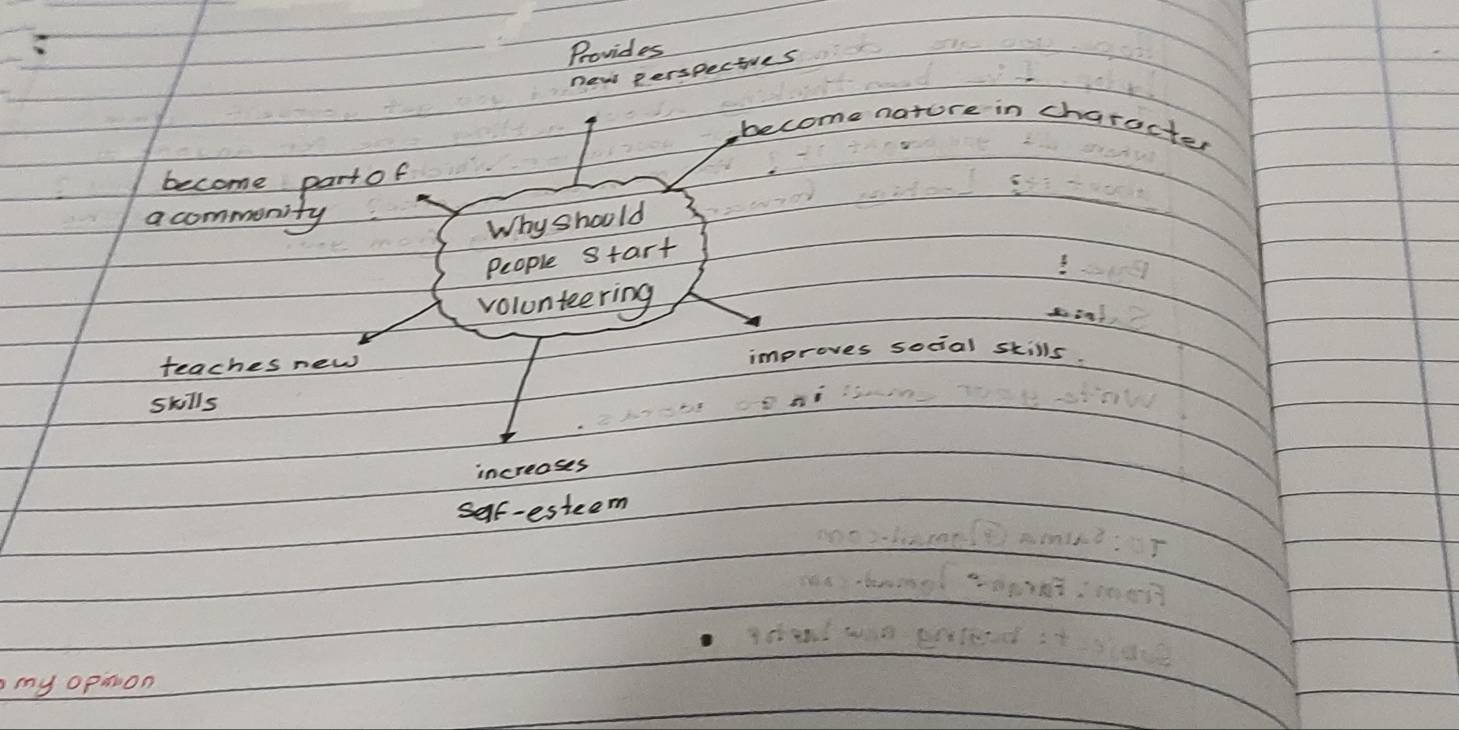 Provides
new perspectives
become nature in character
become part of
a community
Why should
people start
volunteering
teaches new
skills
improves social skills.
increases
self-esteem
my opinion